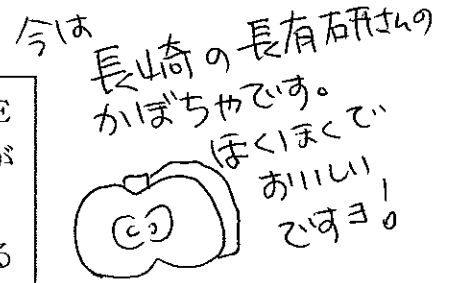 今は
長崎の長有研さんの
かぼちゃです。
ほくほくで
おいしい
ですヨ!